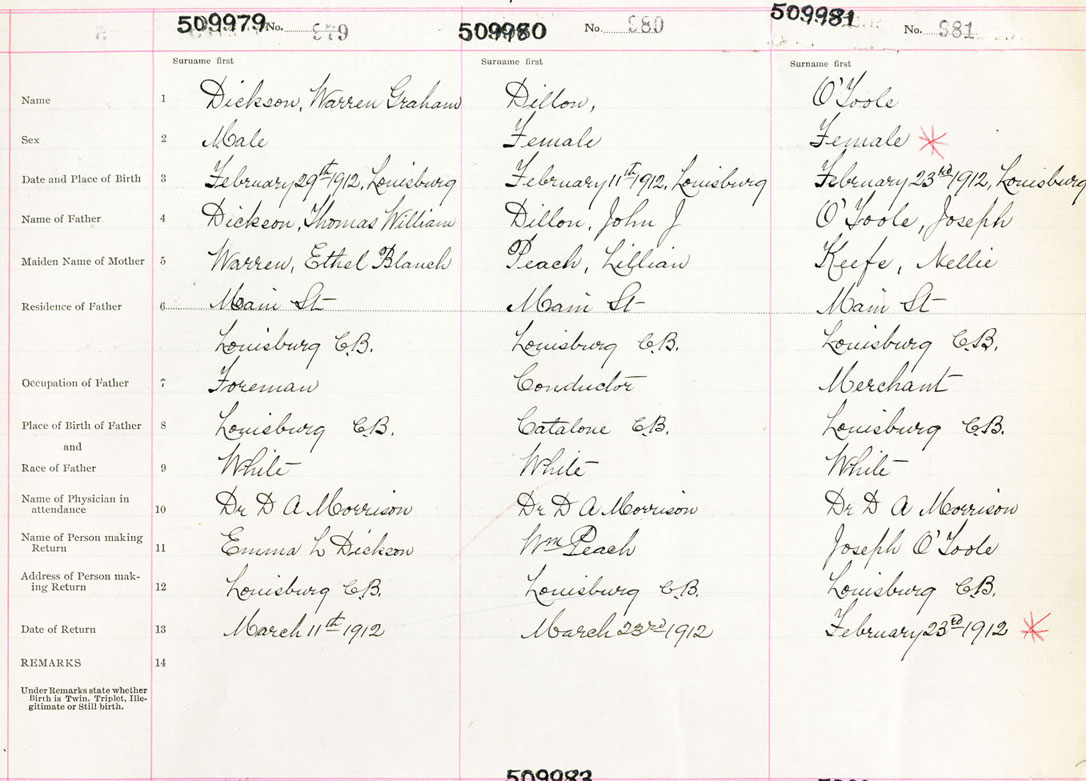 509979 No. 979 509980 No. 980 509981 No. 981
Surname first Surname first Surname first
Name 1 Dickson, Warren Graham Dillon, O'Toole
Sex 2 Male Female Female
Date and Place of Birth 3 February 29th 1912, Louisburg February 11th 1912, Louisburg February 23rd 1912, Louisburg
Name of Father 4 Dickson, Thomas William Dillon, John J O'Toole, Joseph
Maiden Name of Mother 5 Warren, Ethel Blanch Peach, Lillian Keefe, Nellie
Residence of Father 6 Main St Main St Main St
Louisburg C.B. Louisburg C.B. Louisburg C.B.
Occupation of Father 7 Foreman Conductor Merchant
Place of Birth of Father 8 Louisburg C.B. Catalone C.B. Louisburg C.B.
and
Race of Father 9 White White White
Name of Physician in
attendance 10 Dr D A Morrison Dr D A Morrison Dr D A Morrison
Name of Person making
Return 11 Emma L Dickson Wm Peach Joseph O'Toole
Address of Person mak-
ing Return 12 Louisburg C.B. Louisburg C.B. Louisburg C.B.
Date of Return 13 March 11th 1912 March 23rd 1912 February 23rd 1912
REMARKS 14
Under Remarks state whether
Birth is Twin, Triplet, Ille-
gitimate or Still birth.
509983